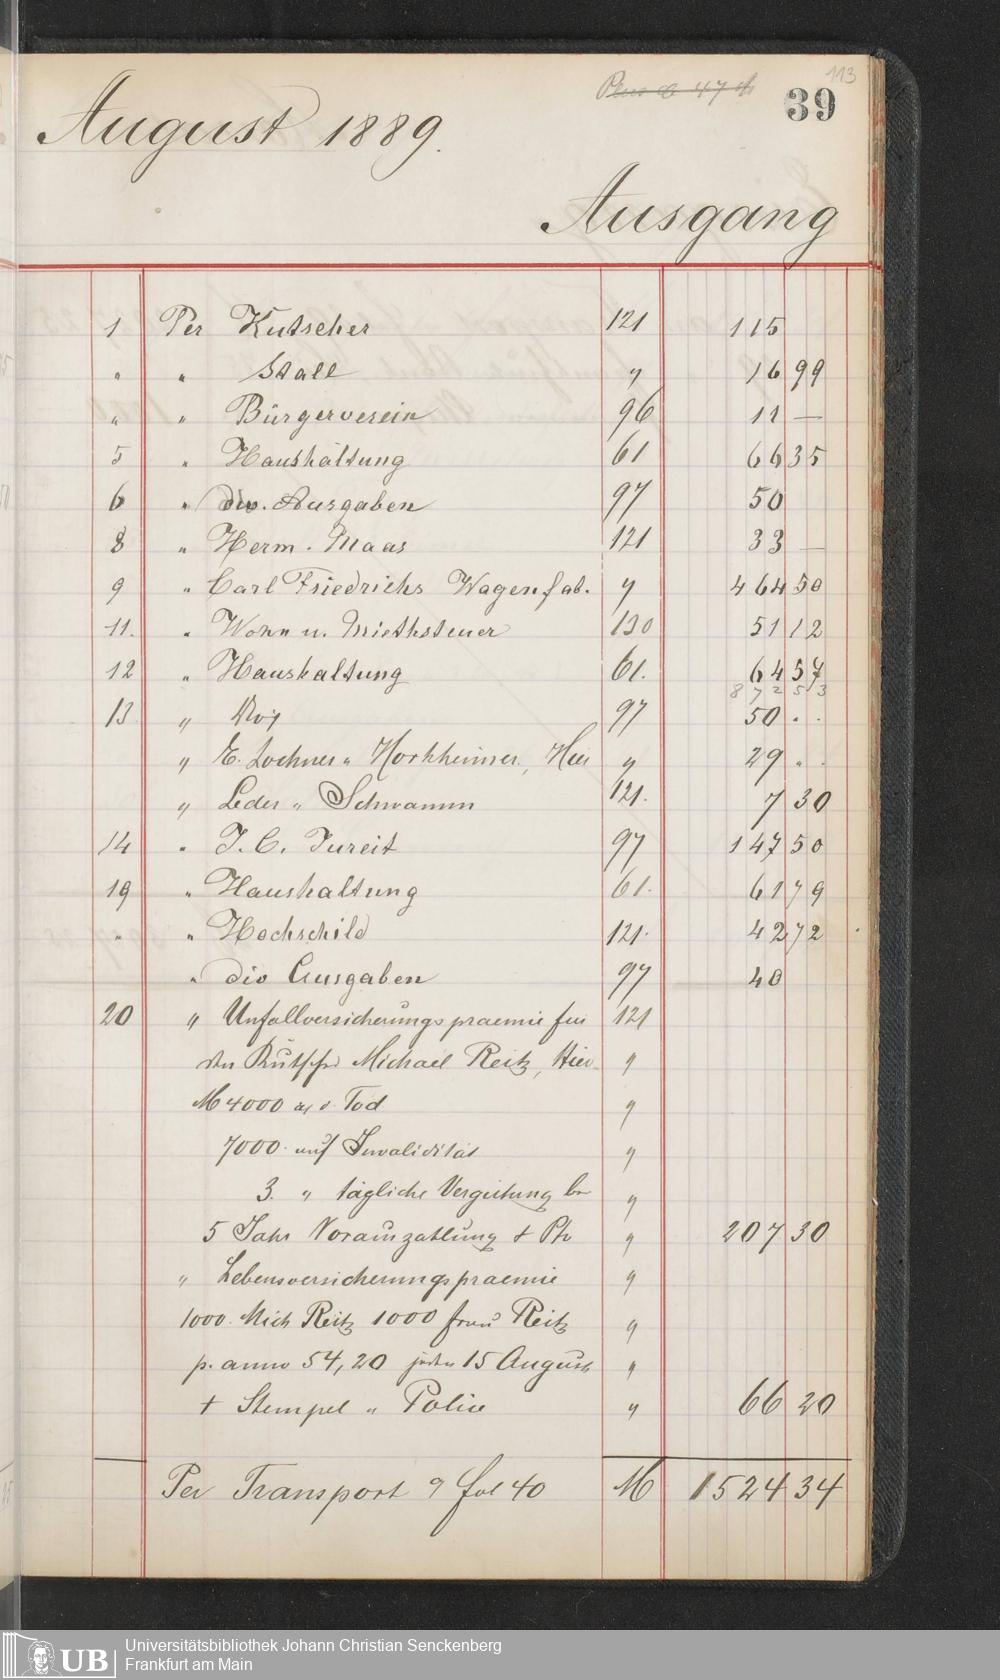 113
39
August 1889.
Ausgang
1 Per Kutscher 121 115
" " Stall " 16 99
" " Bürgerverein 96 11 —
5 " Haushaltung 61 66 35
6 " div. Ausgaben 97 50
8 " Herm. Maas 121 33 —
9 " Carl Friedrichs Wagenfab. " 464 50
11. " Wohn u. Miethsteuer 130 51 12
12 " Haushaltung 61. 64 57
8 7 2 5 3
13 " 97 50 . .
" E. Lochner " Horkheimer, Hier " 29 . .
" Leder " Schwamm 121. 7 30
14 " J. C. Jureit 97 147 50
19 " Haushaltung 61. 61 79
" " Hochschild 121. 42 72
" div Ausgaben 97 40
20 " Unfallversicherungspraemie für 121
den Kutscher Michael Reitz, Hier "
M 4000 Tod "
7000 auf Invalidität "
3. " tägliche Vergütung "
5 Jahr Vorauszahlung + " 207 30
" Lebensversicherungspraemie "
1000. Mich Reitz 1000 Frau Reitz "
p. anno 54,20 jeden 15 August "
+ Stempel " Police " 66 20
Per Transport fol 40 M 1524 34
UB
Universitätsbibliothek Johann Christian Senckenberg
Frankfurt am Main